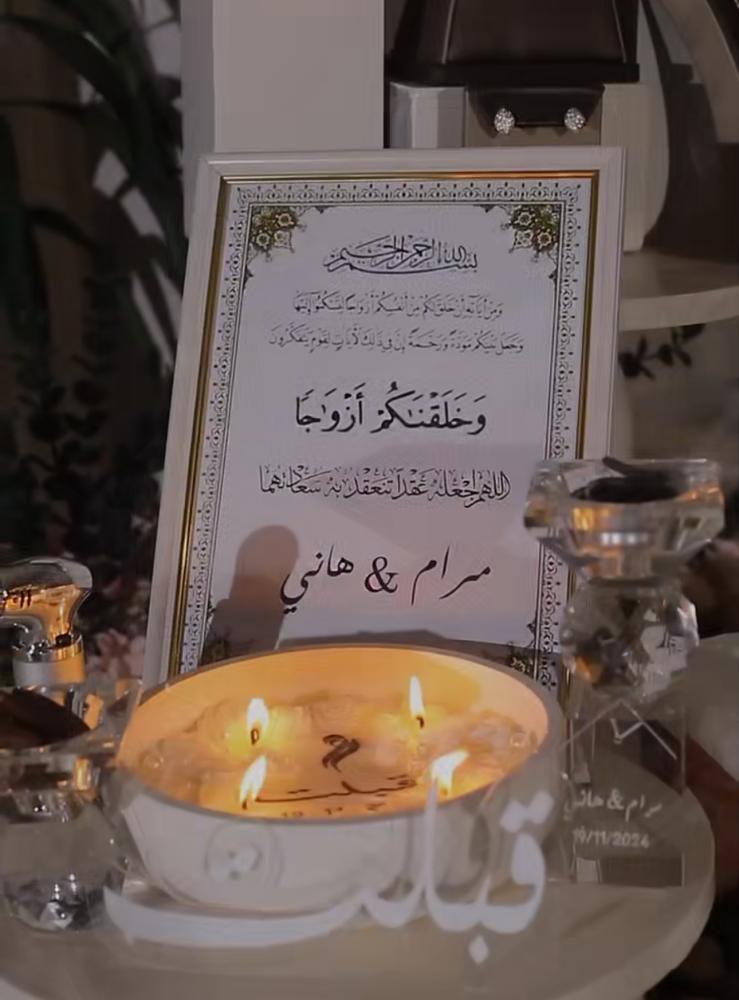 بسم الله الرحمن الرحيم
وَمِنْ آيَاتِهِ أَنْ خَلَقَ لَكُم مِّنْ أَنفُسِكُمْ أَزْوَاجًا لِّتَسْكُنُوا إِلَيْهَا
وَجَعَلَ بَيْنَكُم مَّوَدَّةً وَرَحْمَةً إِنَّ فِي ذَلِكَ لَآيَاتٍ لِّقَوْمٍ يَتَفَكَّرُونَ
وَخَلَقْنَـٰكُمْ أَزْوَٰجًا
اللهم اجعله عقدا تنعقد به سعادتهما
مرام & هاني
قبلت
مرام & هاني
19/11/2024
قبلت